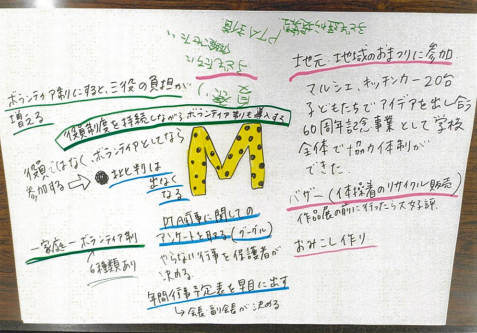 地元・地域のおまつりに参加
マルシェ、キッチンカー20台
子どもたちでアイデアを出し合う
60周年記念事業として学校
全体で協力体制が
できた。
バザー(体操着のリサイクル販売)
作品展の前に行ったら大好評。
おみこし作り
PTA主催
子どもたちに
ボランティア制にすると、三役の負担が
増える
役員制度を持続しながらボランティア制も導入する
役員ではなく、ボランティアとしてなら
参加する → ●批判は
出なく
なる
M
PTA行事に関しての
アンケートを取る(グーグル)
やらない行事を保護者が
決める。
年間行事予定表を早目に出す
↳会長・副会長が決める
一家庭一ボランティア制
6種類あり